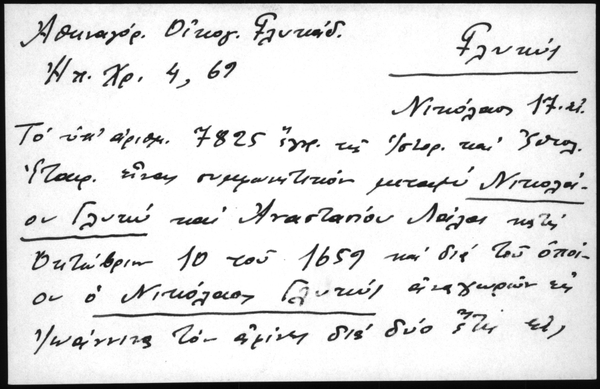 Ἀθηναγόρ. Οἰκογ. Γλυκάδ.
Γλυκύς
Ἠπ. Χρ. 4, 69
Νικόλαος 17. αἰ.
Τό ὑπ' ἀριθμ. 7825 ἔγγρ. τῆς Ἱστορ. καί Ἐθνολ.
Ἑταιρ. εἶναι συμφωνητικόν μεταξύ Νικολά-
ου Γλυκύ καί Ἀναστασίου
Ὀκτώβριον 10 τοῦ 1659 καί διά τοῦ ὁποί-
ου ὁ Νικόλαος Γλυκύς ἀναχωρῶν εἰς
Ἰωάννινα τόν ἀφίνει διά δύο ἔτη εἰς